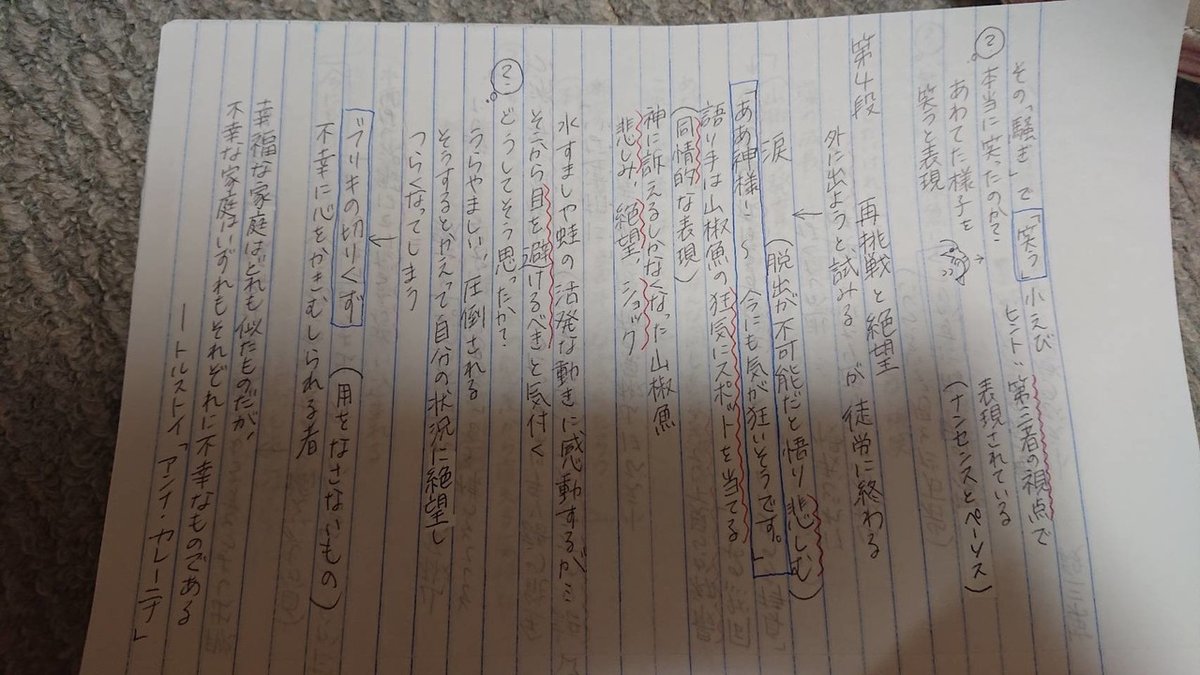 その「騒ぎ」で「笑う」小えび
ヒント…第三者の視点で
表現されている
(ナンセンスとペーソス)
? 本当に笑ったのか?
あわてた様子を
笑うと表現
第4段 再挑戦と絶望
外に出ようと試みるが徒労に終わる
↓
涙 (脱出が不可能だと悟り悲しむ)
「ああ神様!〜今にも気が狂いそうです。」
語り手は山椒魚の狂気にスポットを当てる
(同情的な表現)
神に訴えるしかなくなった山椒魚
悲しみ、絶望、ショック
水すましや蛙の活発な動きに感動するが…
そこから目を避けるべきと気付く
? どうしてそう思ったか?
うらやましい、圧倒される
そうするとかえって自分の状況に絶望し
つらくなってしまう
↓
「ブリキの切りくず」(用をなさないもの)
不幸に心をかきむしられる者
幸福な家庭はどれも似たものだが、
不幸な家庭はいずれもそれぞれに不幸なものである
―トルストイ「アンナ・カレーニナ」